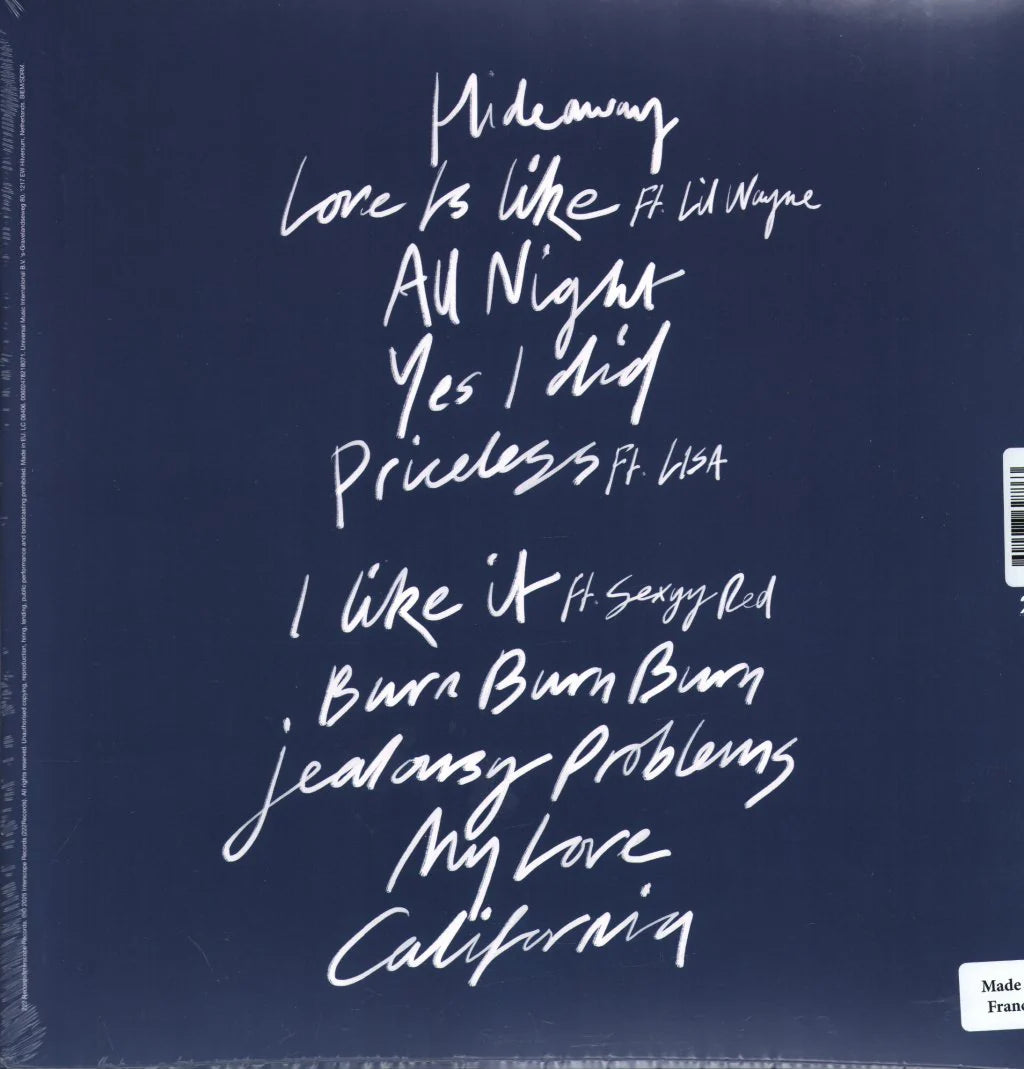 Hideaway
Love Is like Ft. Lil Wayne
All Night
Yes I did
Priceless Ft. LISA
I like it ft. Sexyy Red
Burn Burn Burn
jealousy Problems
My Love
California
222 Records/Interscope Records. ℗© 2025 Interscope Records (222 Records). All rights reserved. Unauthorised copying, reproduction, hiring, lending, public performance and broadcasting prohibited. Made in EU. LC 06406. Universal Music International B.V. 's-Gravelandseweg 80, 1217 EW Hilversum, Netherlands. BIEM/SDRM.
Made
Franc